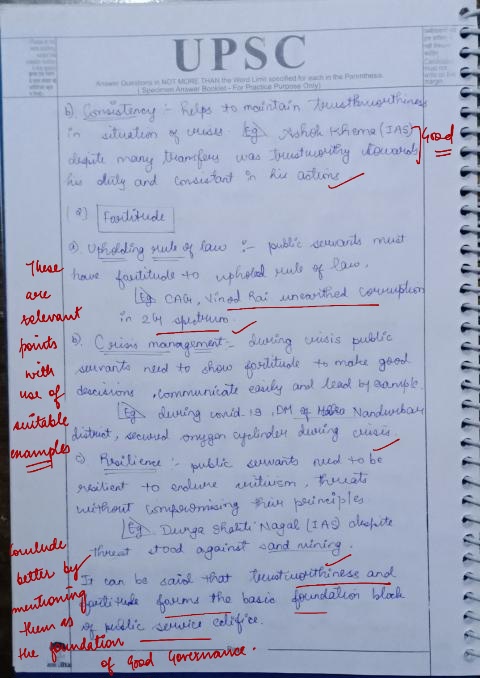 UPSC
Answer Questions in NOT MORE THAN the Word Limit specified for each in the Parenthesis.
( Specimen Answer Booklet - For Practice Purpose Only)
b) Consistency :- helps to maintain trustworthiness
in situation of crises. Eg Ashok Khema (IAS)
despite many transfers was trustworthy towards
his duty and consistant in his actions
Good
(2) Fortitude
a) Upholding rule of law :- public servants must
have fortitude to uphold rule of law.
Eg CAG, Vinod Rai unearthed corruption
in 2G spectrum.
b) Crisis management - during crisis public
servants need to show fortitude to make good
descisions, communicate easily and lead by example.
Eg during covid 19, DM of Nandurbar
district, secured oxygen cyclinder during crisis.
c) Resilience :- public servants need to be
resilient to endure criticism, threats
without compromising their principles
Eg Durga Shakti Nagal (IAS) despite
threat stood against sand mining.
It can be said that trustworthiness and
fortitude forms the basic foundation block
of public service edifice.
These
are
relevant
points
with
use of
suitable
examples
Conclude
better by
mentioning
them as
the foundation
of Good Governance.